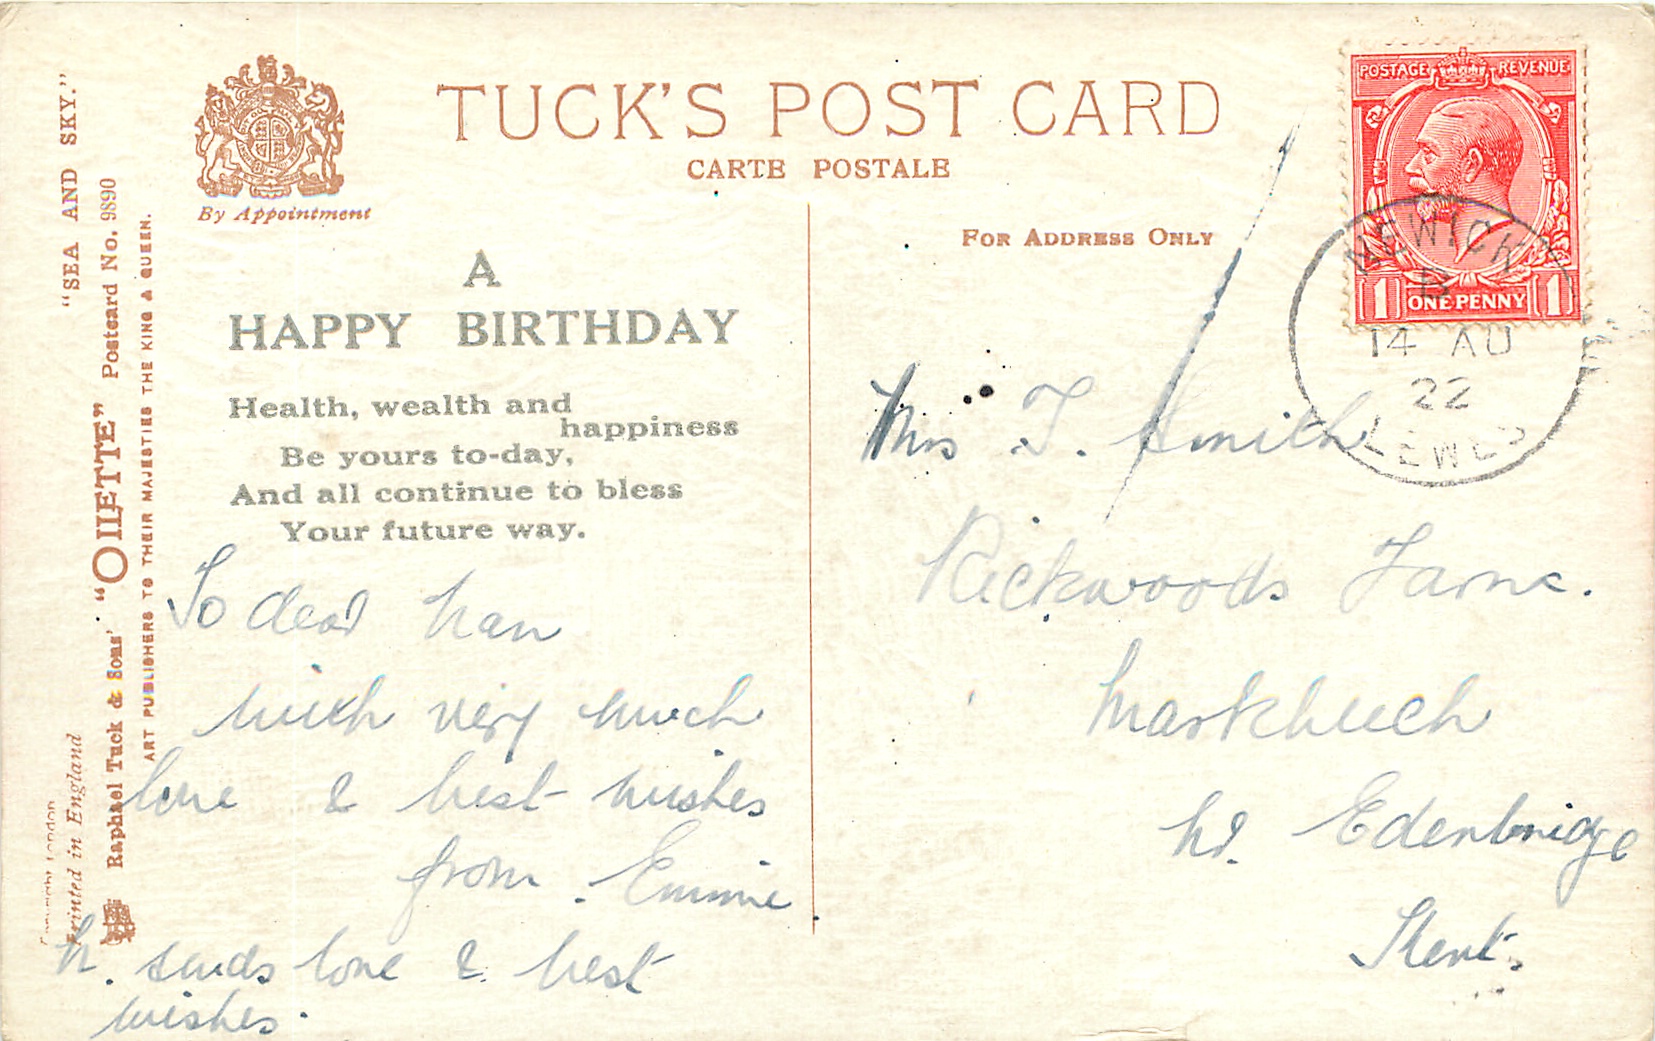 TUCK'S POST CARD
CARTE POSTALE
By Appointment
FOR ADDRESS ONLY
A
HAPPY BIRTHDAY
Health, wealth and
happiness
Be yours to-day,
And all continue to bless
Your future way.
To dear Nan
with very much
love & best wishes
from . Emmie
N. sends love & best
wishes.
Mrs T. Smith
Rickwoods Farm.
Markbeech
Nr. Edenbridge
Kent.
POSTAGE REVENUE
1 ONE PENNY 1
NEWICK
B
14 AU
22
LEWES
"SEA AND SKY."
Raphael Tuck & Sons' "OILETTE" Postcard No. 9890
ART PUBLISHERS TO THEIR MAJESTIES THE KING & QUEEN.
Printed in England
London